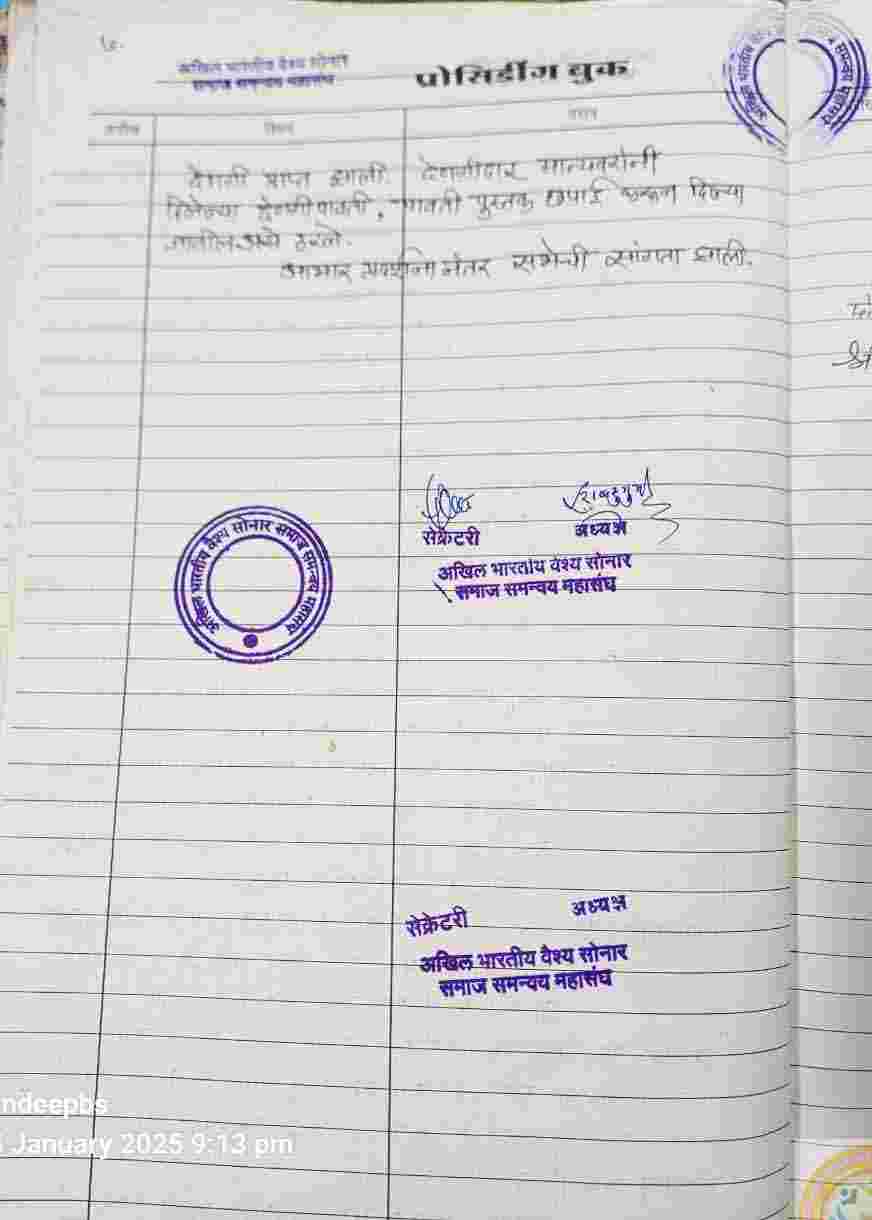 अखिल भारतीय वैश्य सोनार
समाज समन्वय महासंघ
प्रोसिडींग बुक
देणगी प्राप्त झाली. देणगीदार मान्यवरांनी
दिलेल्या देणगी पावती, पावती पुस्तक छपाई करून दिल्या
जातील असे ठरले.
आभार प्रदर्शना नंतर सभेची सांगता झाली.
सेक्रेटरी अध्यक्ष
अखिल भारतीय वैश्य सोनार
समाज समन्वय महासंघ
अखिल भारतीय वैश्य सोनार समाज समन्वय महासंघ
सेक्रेटरी अध्यक्ष
अखिल भारतीय वैश्य सोनार
समाज समन्वय महासंघ
ndeepbs
January 2025 9:13 pm